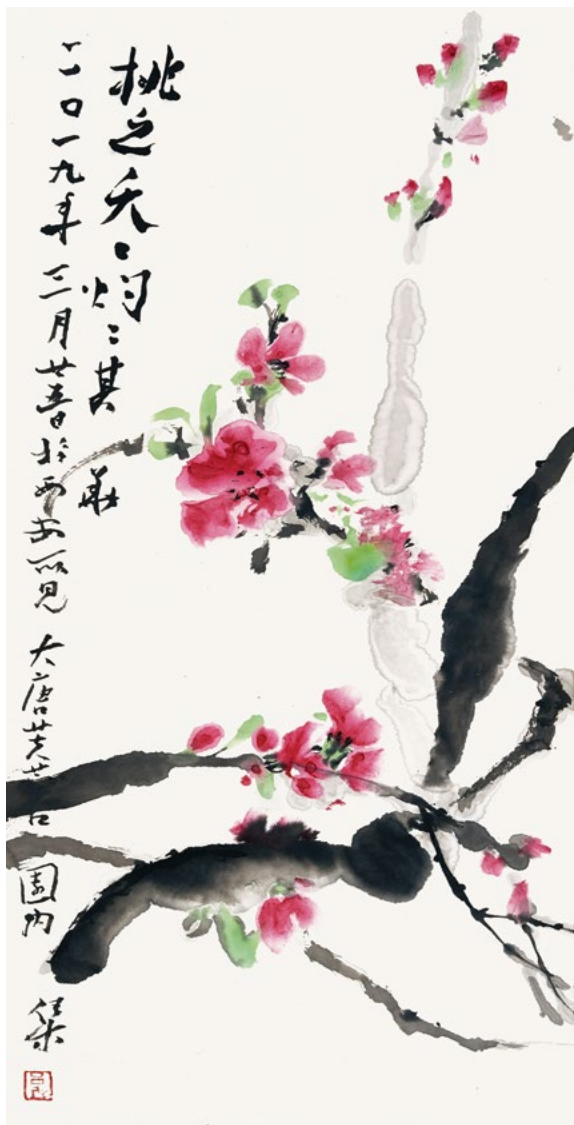 桃之夭〻灼〻其華
二〇一九年三月廿五日於西安所見大唐芙蓉園內